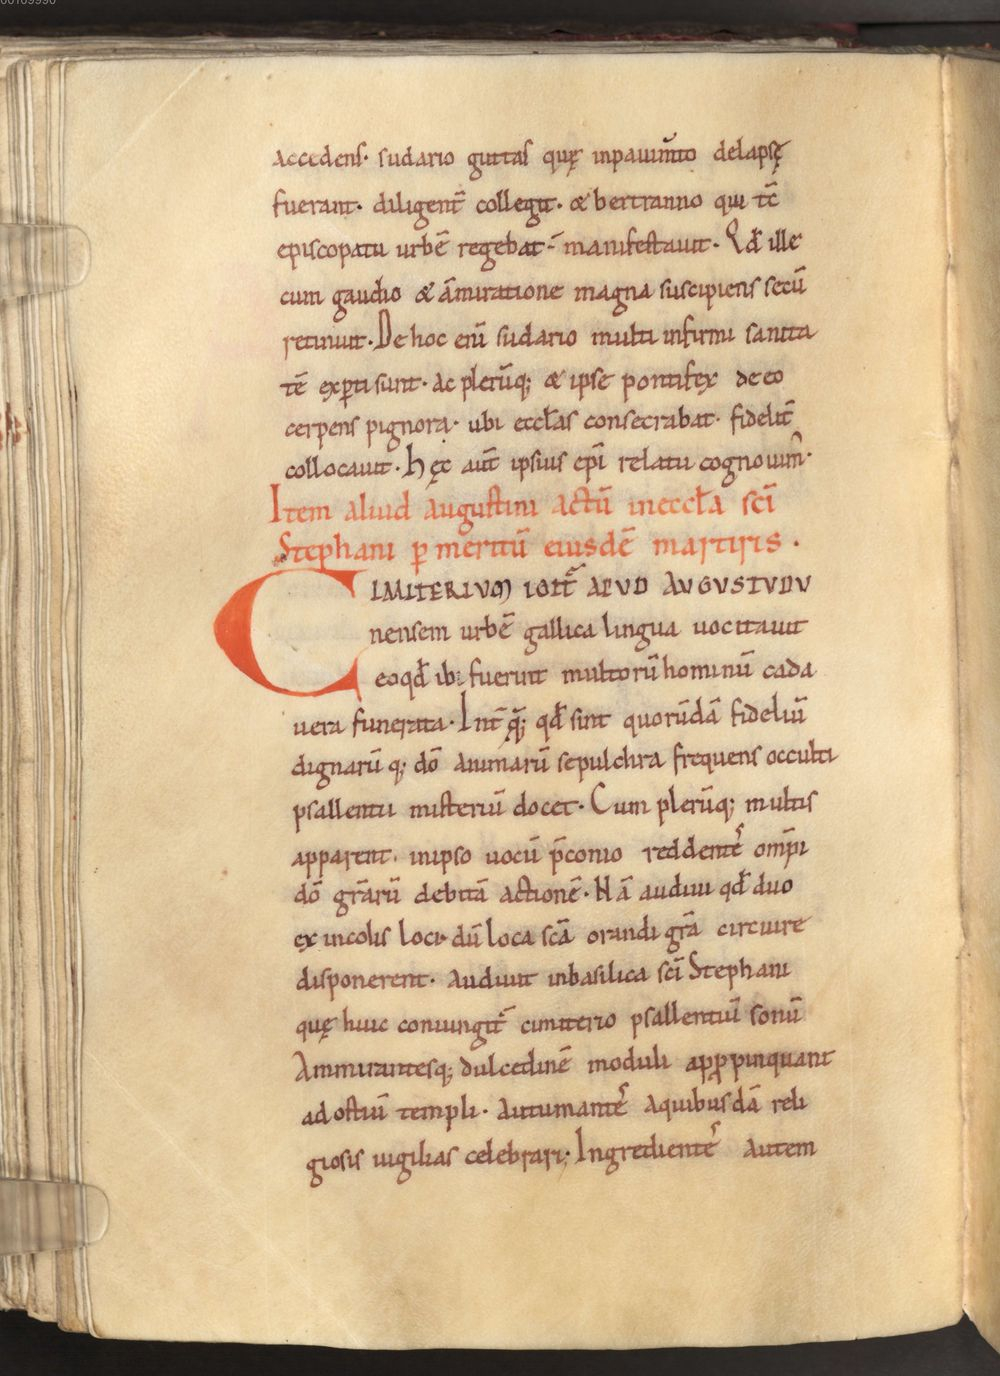 00109990
accedens· sudario guttas quę inpauim̄to delapsę
fuerant· diligent̄ collegit· & bertranno qui tc̄
episcopatu urbē regebat·̄ manifestauit· Qđ ille
cum gaudio & āmiratione magna suscipiens secū
retinuit· De hoc eni̅ sudario multi infirmi sanita
tē exꝑti sunt· ac plerūq; & ipse pontifex de eo
cerpens pignora· ubi eccłas consecrabat· fidelit̄
collocauit· Hęc aut̄ ipsius epi̅ relatu cognouim̄·
Item aliud augustini actū ineccła sci̅
Stephani ꝑ meritū eiusdē martiris ·
CIMITERIUM IGIT̄ APUD AUGUSTUDU
nensem urbē gallica lingua uocitauit
eoqđ ibi fuerint multorū hominū cada
uera funerata· Int̄ q̄; qđ sint quorūdā fideliū
dignarū q; dō animarū sepulchra frequens occulti
psallentii misteriū docet· Cum plerūq; multis
apparent· inipso uocū p̄conio reddentēs omp̄i
dō gr̄arū debitā actionē· Nā audiui qđ duo
ex incolis loci· dū loca scā orandi gr̄a circuire
disponerent· Audiunt inbasilica sci̅ Stephani
quę huic coniungit̄ cimiterio psallentiū sonū
Ammirantesq; dulcedinē moduli apꝓpinquant
ad ostiū templi· Autumantēs Aquibusdā reli
giosis uigilias celebrari; Ingredientēs Autem